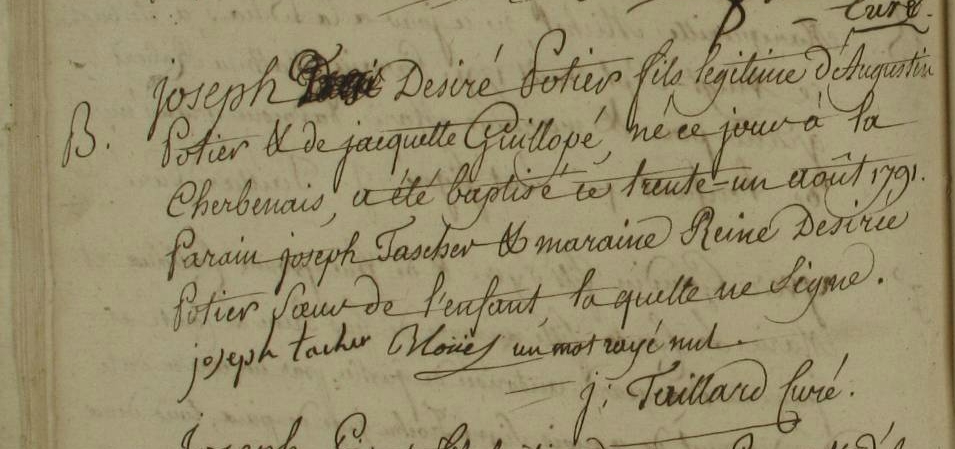 Curé.
joseph Desiré Potier fils legitime d'Augustin
B. Potier & de jacquette Guillopé, né ce jour à la
Cherbenais, a été baptisé ce trente-un août 1791.
Parain joseph Tascher & maraine Reine Desirée
Potier sœur de l'enfant, la quelle ne signe.
joseph tacher un mot rayé nul.
j: Taillard Curé.
Joseph